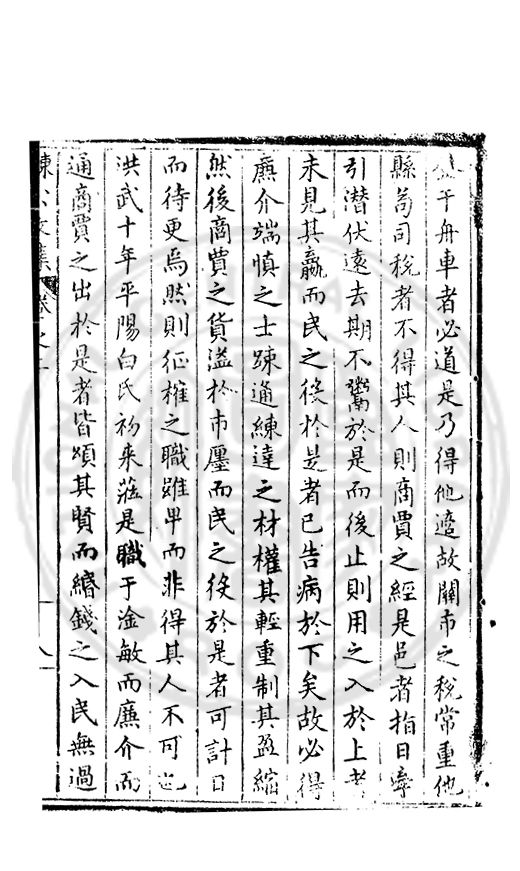 于舟車者必道是乃得他適故關市之稅常重他
縣苟司稅者不得其人則商賈之經是邑者指日
引潛伏遠去期不鬻於是而後止則用之入於上者
未見其贏而民之役於是者已告病於下矣故必得
廉介端慎之士踈通練達之材權其輕重制其盈縮
然後商賈之貨溢於市廛而民之役於是者可計日
而待更焉然則征榷之職雖卑而非得其人不可也
洪武十年平陽白氏初来蒞是職于淦敏而廉介而
通商賈之出於是者皆頌其賢而緡錢之入民無過
陳公文集 卷之 八